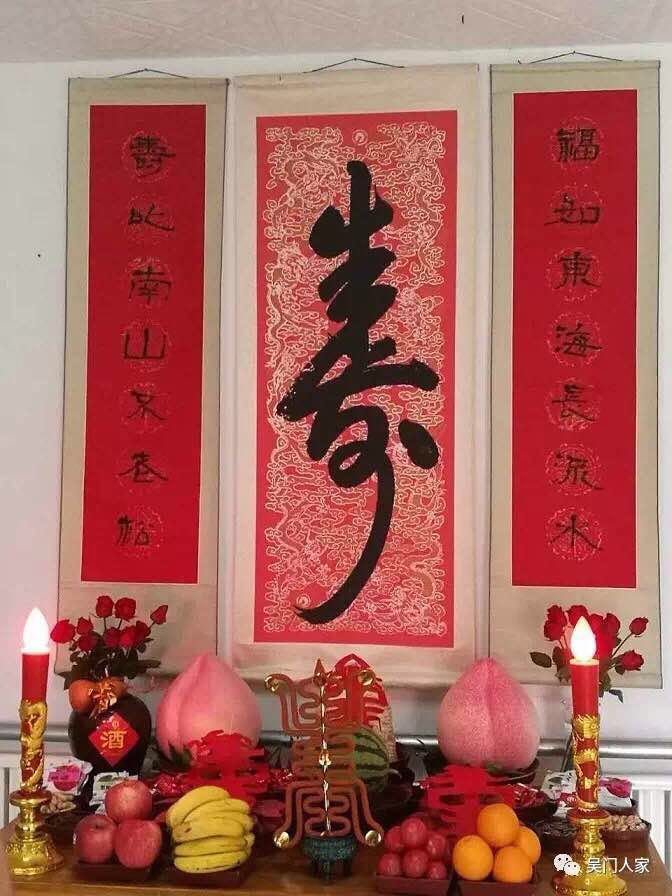 福如東海長流水
寿
壽比南山不老松
酒
吴门人家